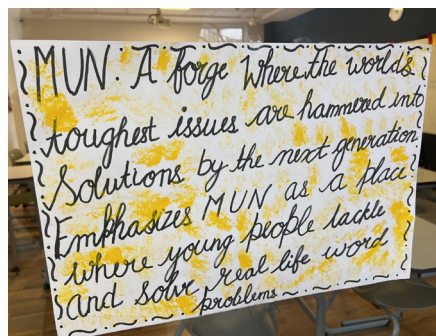 MUN. A forge where the world's
toughest issues are hammered into
Solutions by the next generation
Emphasizes MUN as a place
where young people tackle
and solve real life word
problems